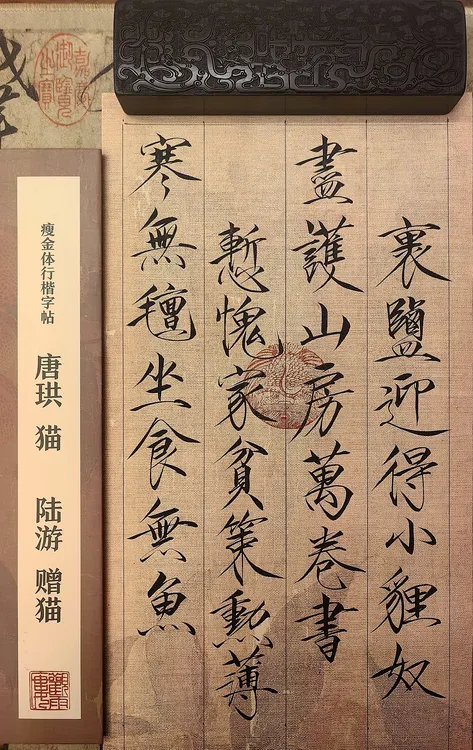 裹鹽迎得小貍奴
盡護山房萬卷書
慙愧家貧策勳薄
寒無氈坐食無魚
瘦金体行楷字帖
唐珙 猫 陆游 赠猫